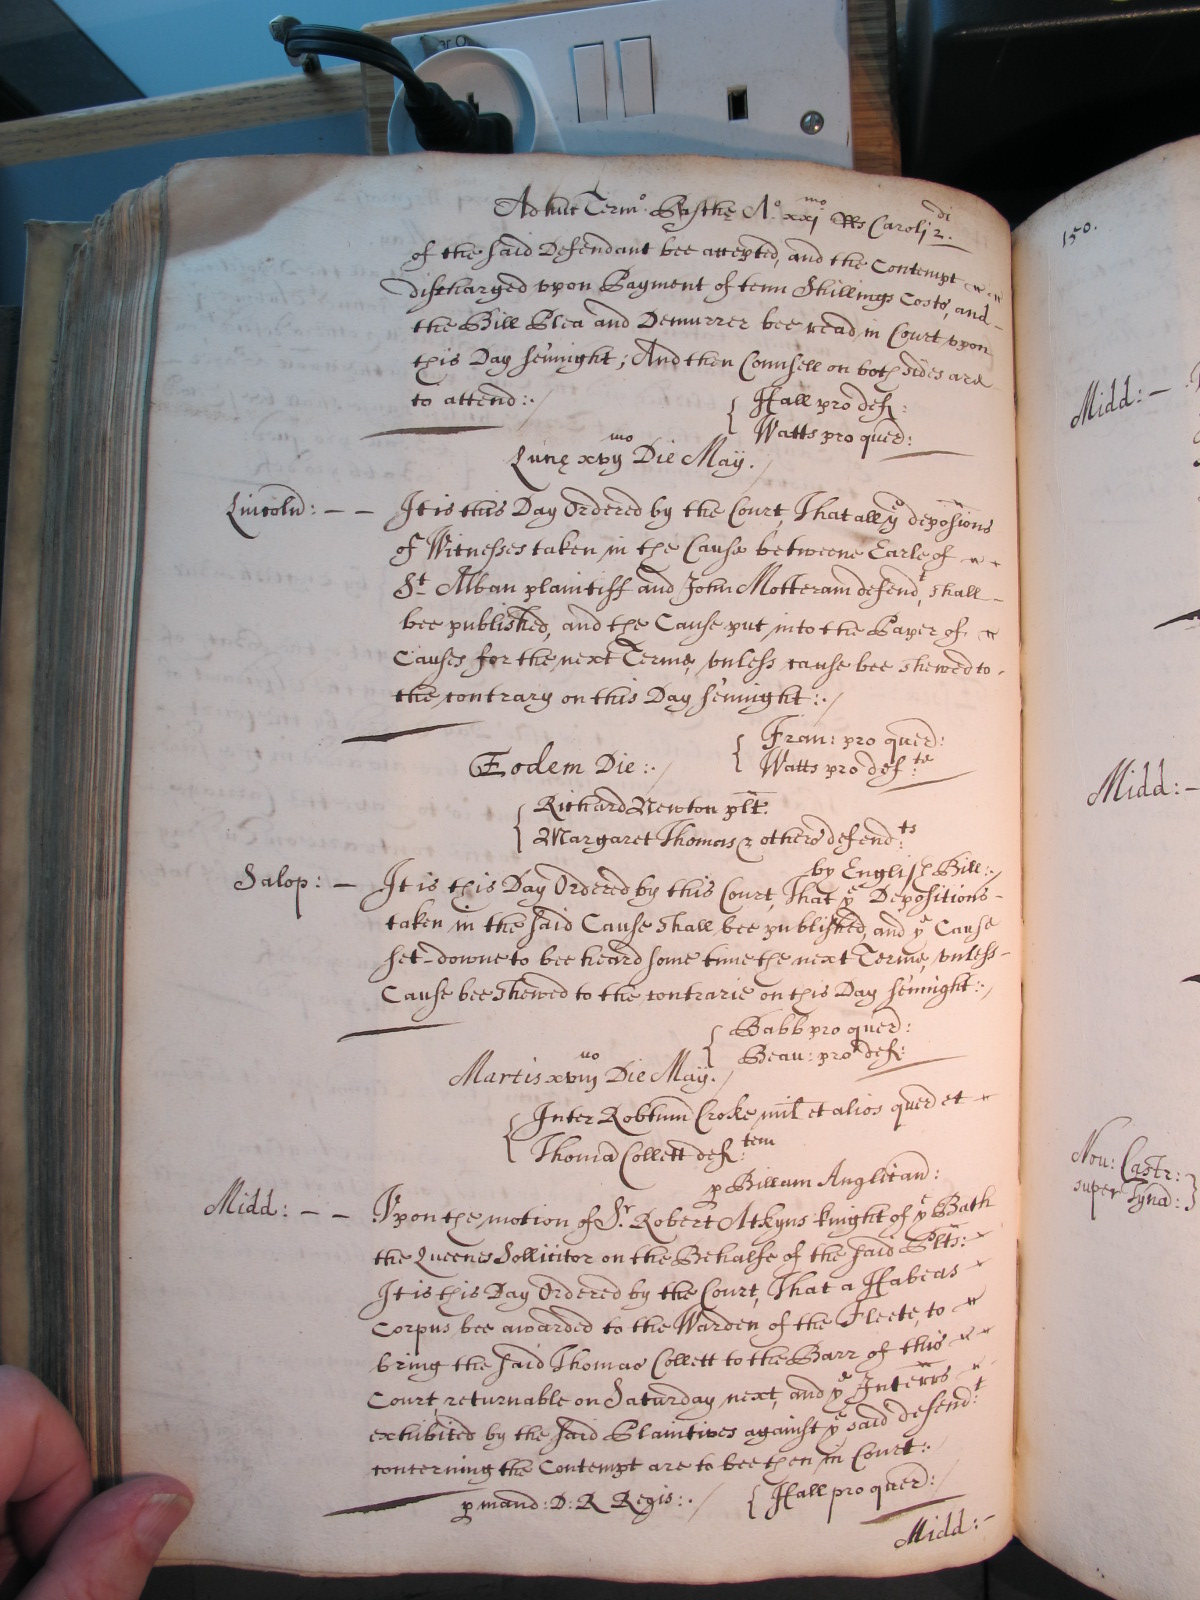 Adhuc Termo. Pasche Ao. xxjmo Rs Carolj 2.di
of the said Defendant bee accepted, and the Contempt
discharged vpon Payment of tenn Shillings Costs, and
the Bill Plea and Demurrer bee read in Court vpon
this Day sennight; And then Counsell on both sides are
to attend:./
{ Hall pro def:
Watts pro quer:
Lune xvijmo Die May./
Lincoln: - - It is this Day Ordered by the Court, That all ye deposions
of Witnesses taken in the Cause betweene Earle of
St Alban plaintiff and John Motteram defendt, shall
bee published, and the Cause put into the Paper of
Causes for the next Terme, vnless cause bee shewed to
the contrary on this Day sennight:./
{ Fran: pro quer:
Watts pro def:te
Eodem Die:./
{ Richard Newton plt:
Margaret Thomas & others defend:ts
by English Bill:./
Salop: - It is this Day Ordered by this Court, That ye Depositions
taken in the said Cause shall bee published, and ye Cause
set-downe to bee heard some time the next Terme, vnless
Cause bee shewed to the contrarie on this Day sennight:./
{ Babb pro quer:
Beau: pro def:
Martis xviijuo Die May./
{ Inter Robtum Croke mil et alios quer et
Thomā Collett def:tem
p Billam Anglican:
Midd: - - Vpon the motion of Sr. Robert Atkyns knight of ye Bath
the Queenes Sollicitor on the Behalfe of the said Plts:
It is this Day Ordered by the Court, That a Habeas
Corpus bee awarded to the Warden of the Fleete, to
bring the said Thomas Collett to the Barr of this
Court returnable on Saturday next, and ye Interrs
exhibited by the said Plaintives against ye said defend:t
concerning the Contempt are to bee then in Court:.
p mand: D: R Regis:./ { Hall pro quer:
Midd:-
150.
Midd: -
Midd: -
Nou: Castr:
super Tyna: }